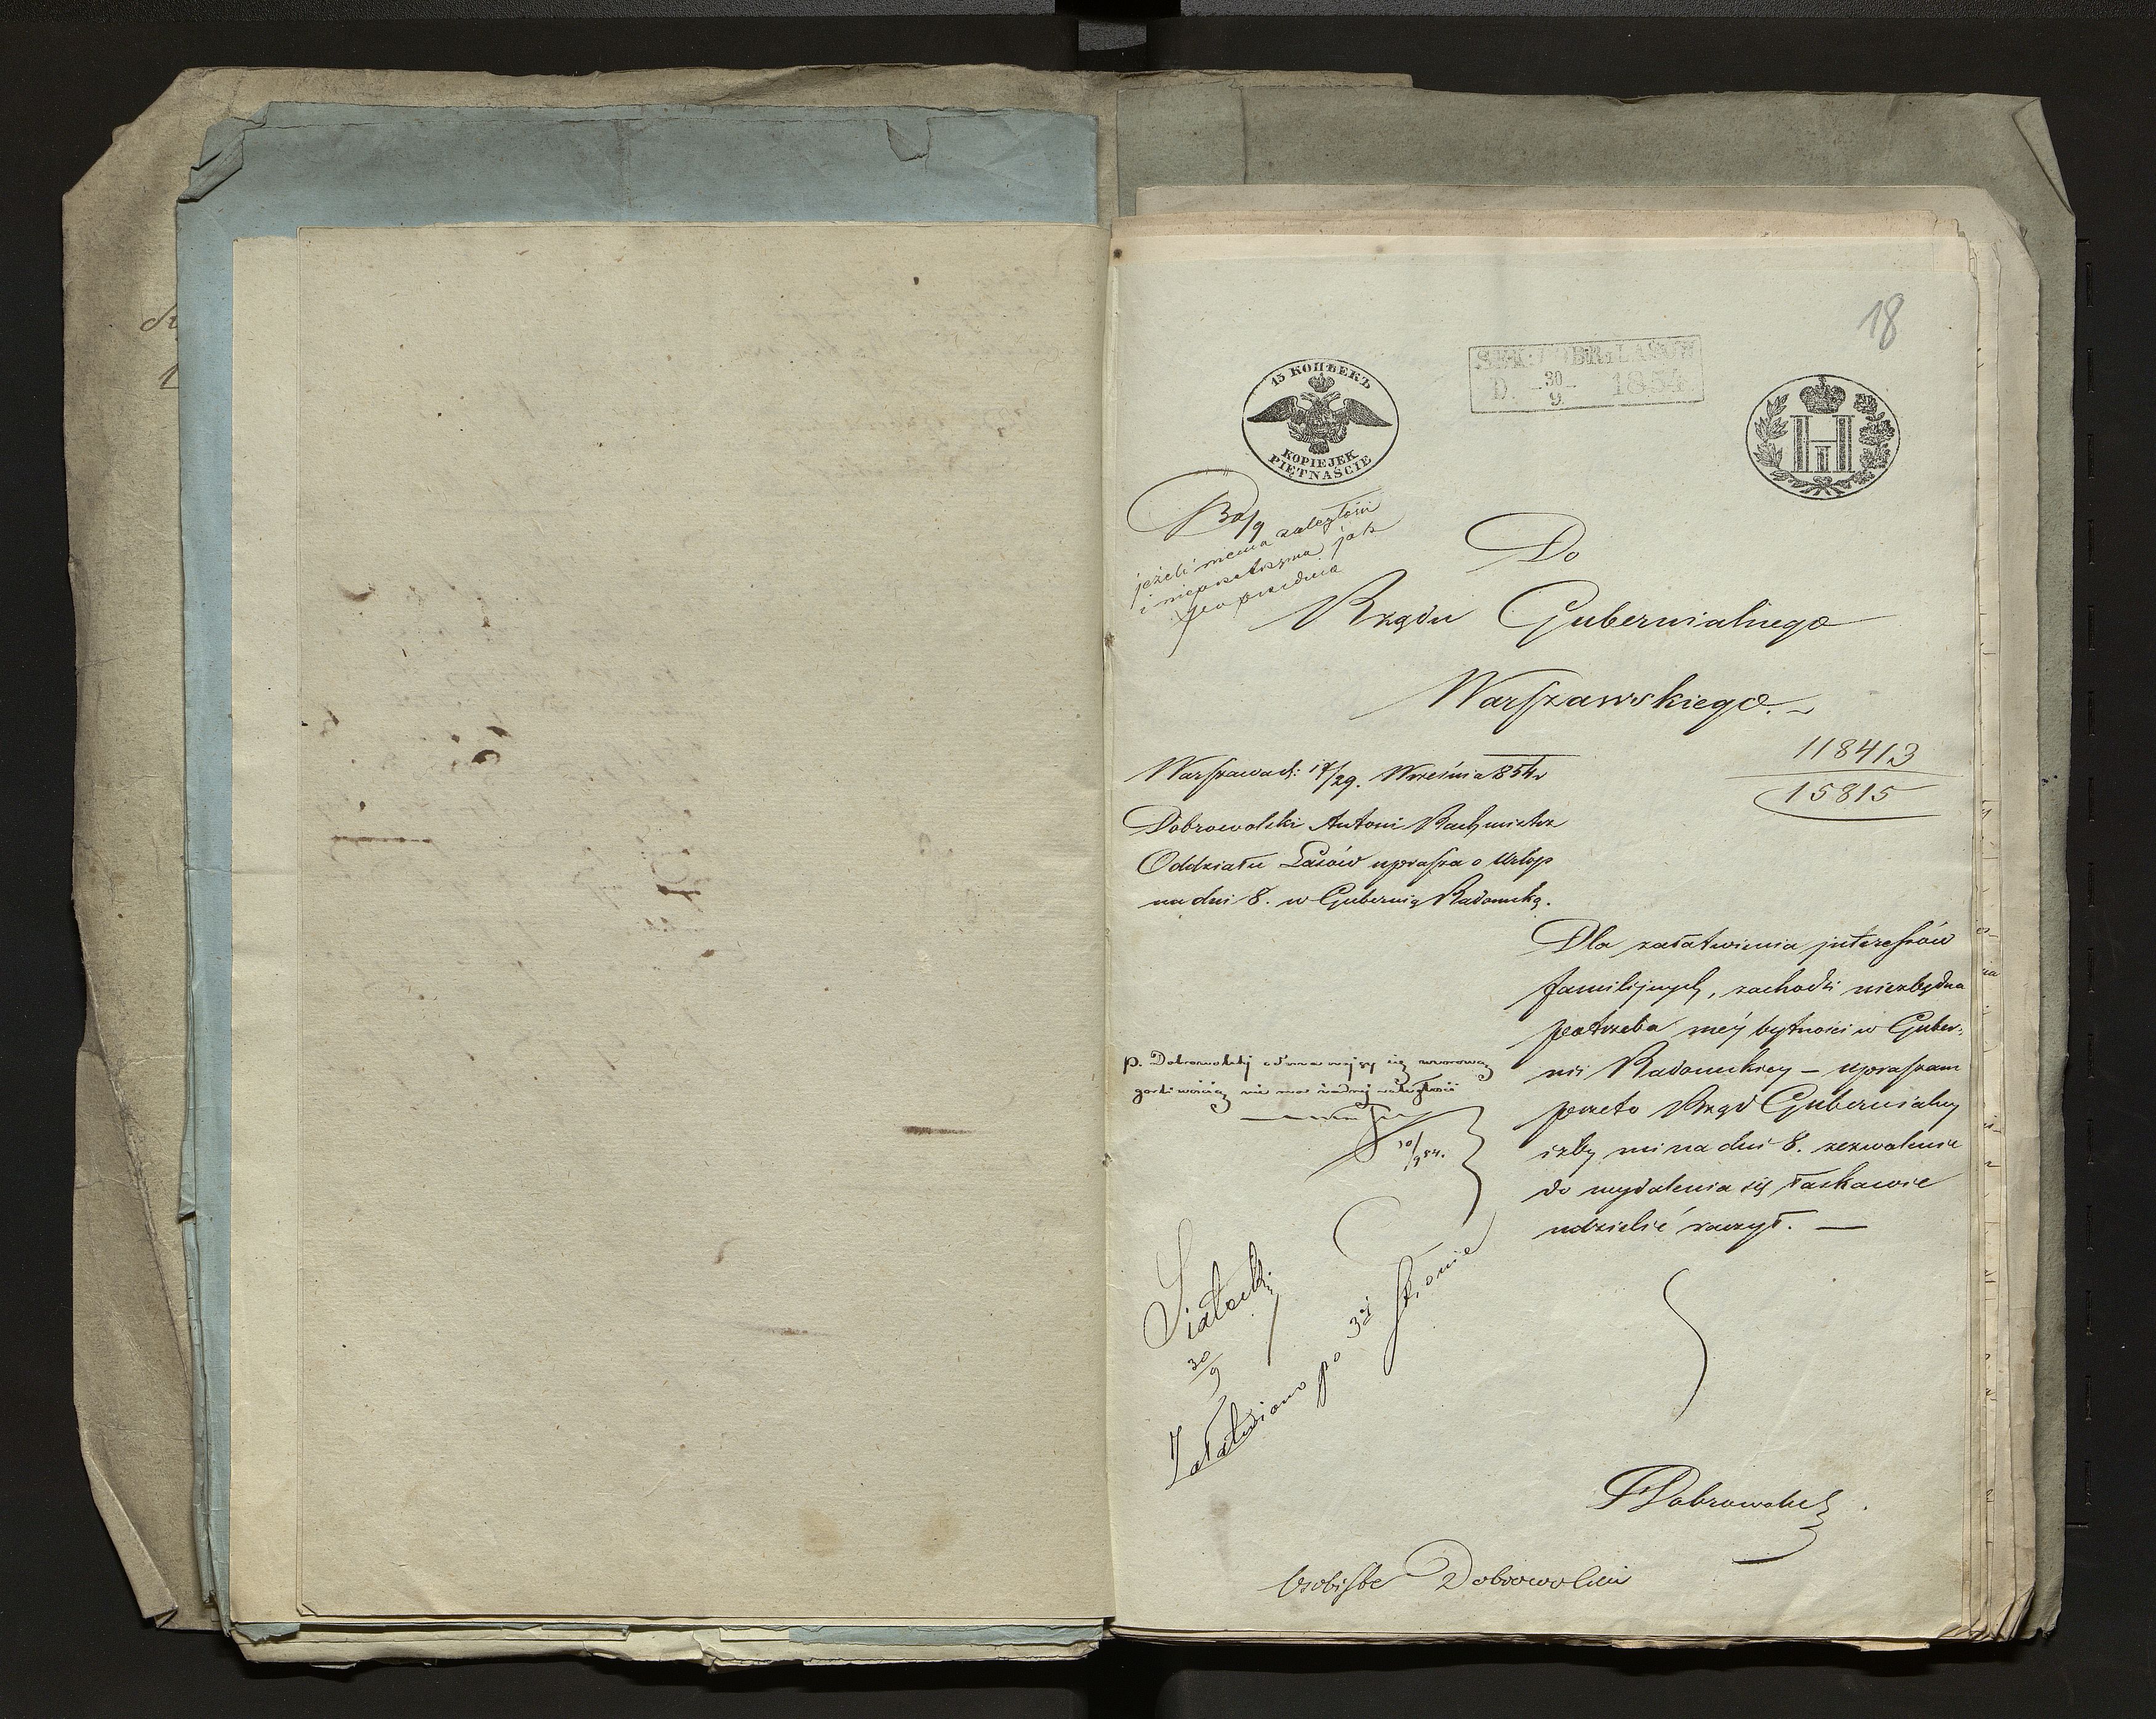 18
15 КОПѢЕКЪ
KOPIEJEK
PIĘTNAŚCIE
SEK: DOBR i LASÓW
D. 30/9 1854
H I
30/9
jeżeli niema zaległości
i nieprzetrzyma jak
poprzednia
Do
Rządu Gubernialnego
Warszawskiego.
118413
15815
Warszawa d: 17/29. Września 854 r
Dobrowolski Antoni Rachmistrz
Oddziału Lasów uprasza o Urlop
na dni 8. w Gubernią Radomską.
Dla załatwienia interessów
familijnych, zachodzi niezbędna
potrzeba méj bytności w Guber-
nii Radomskiey – upraszam
przeto Rząd Gubernialny
iżby mi na dni 8. zezwolenie
do wydalenia się łaskawie
udzielić raczył. —
P. Dobrowolski odznaczający się wzorową
gorliwością nie ma żadnej zaległości
30/9 54.
30/9
Załatwiono po 3éj stronie
ADobrowolski
Osobiste Dobrowolski